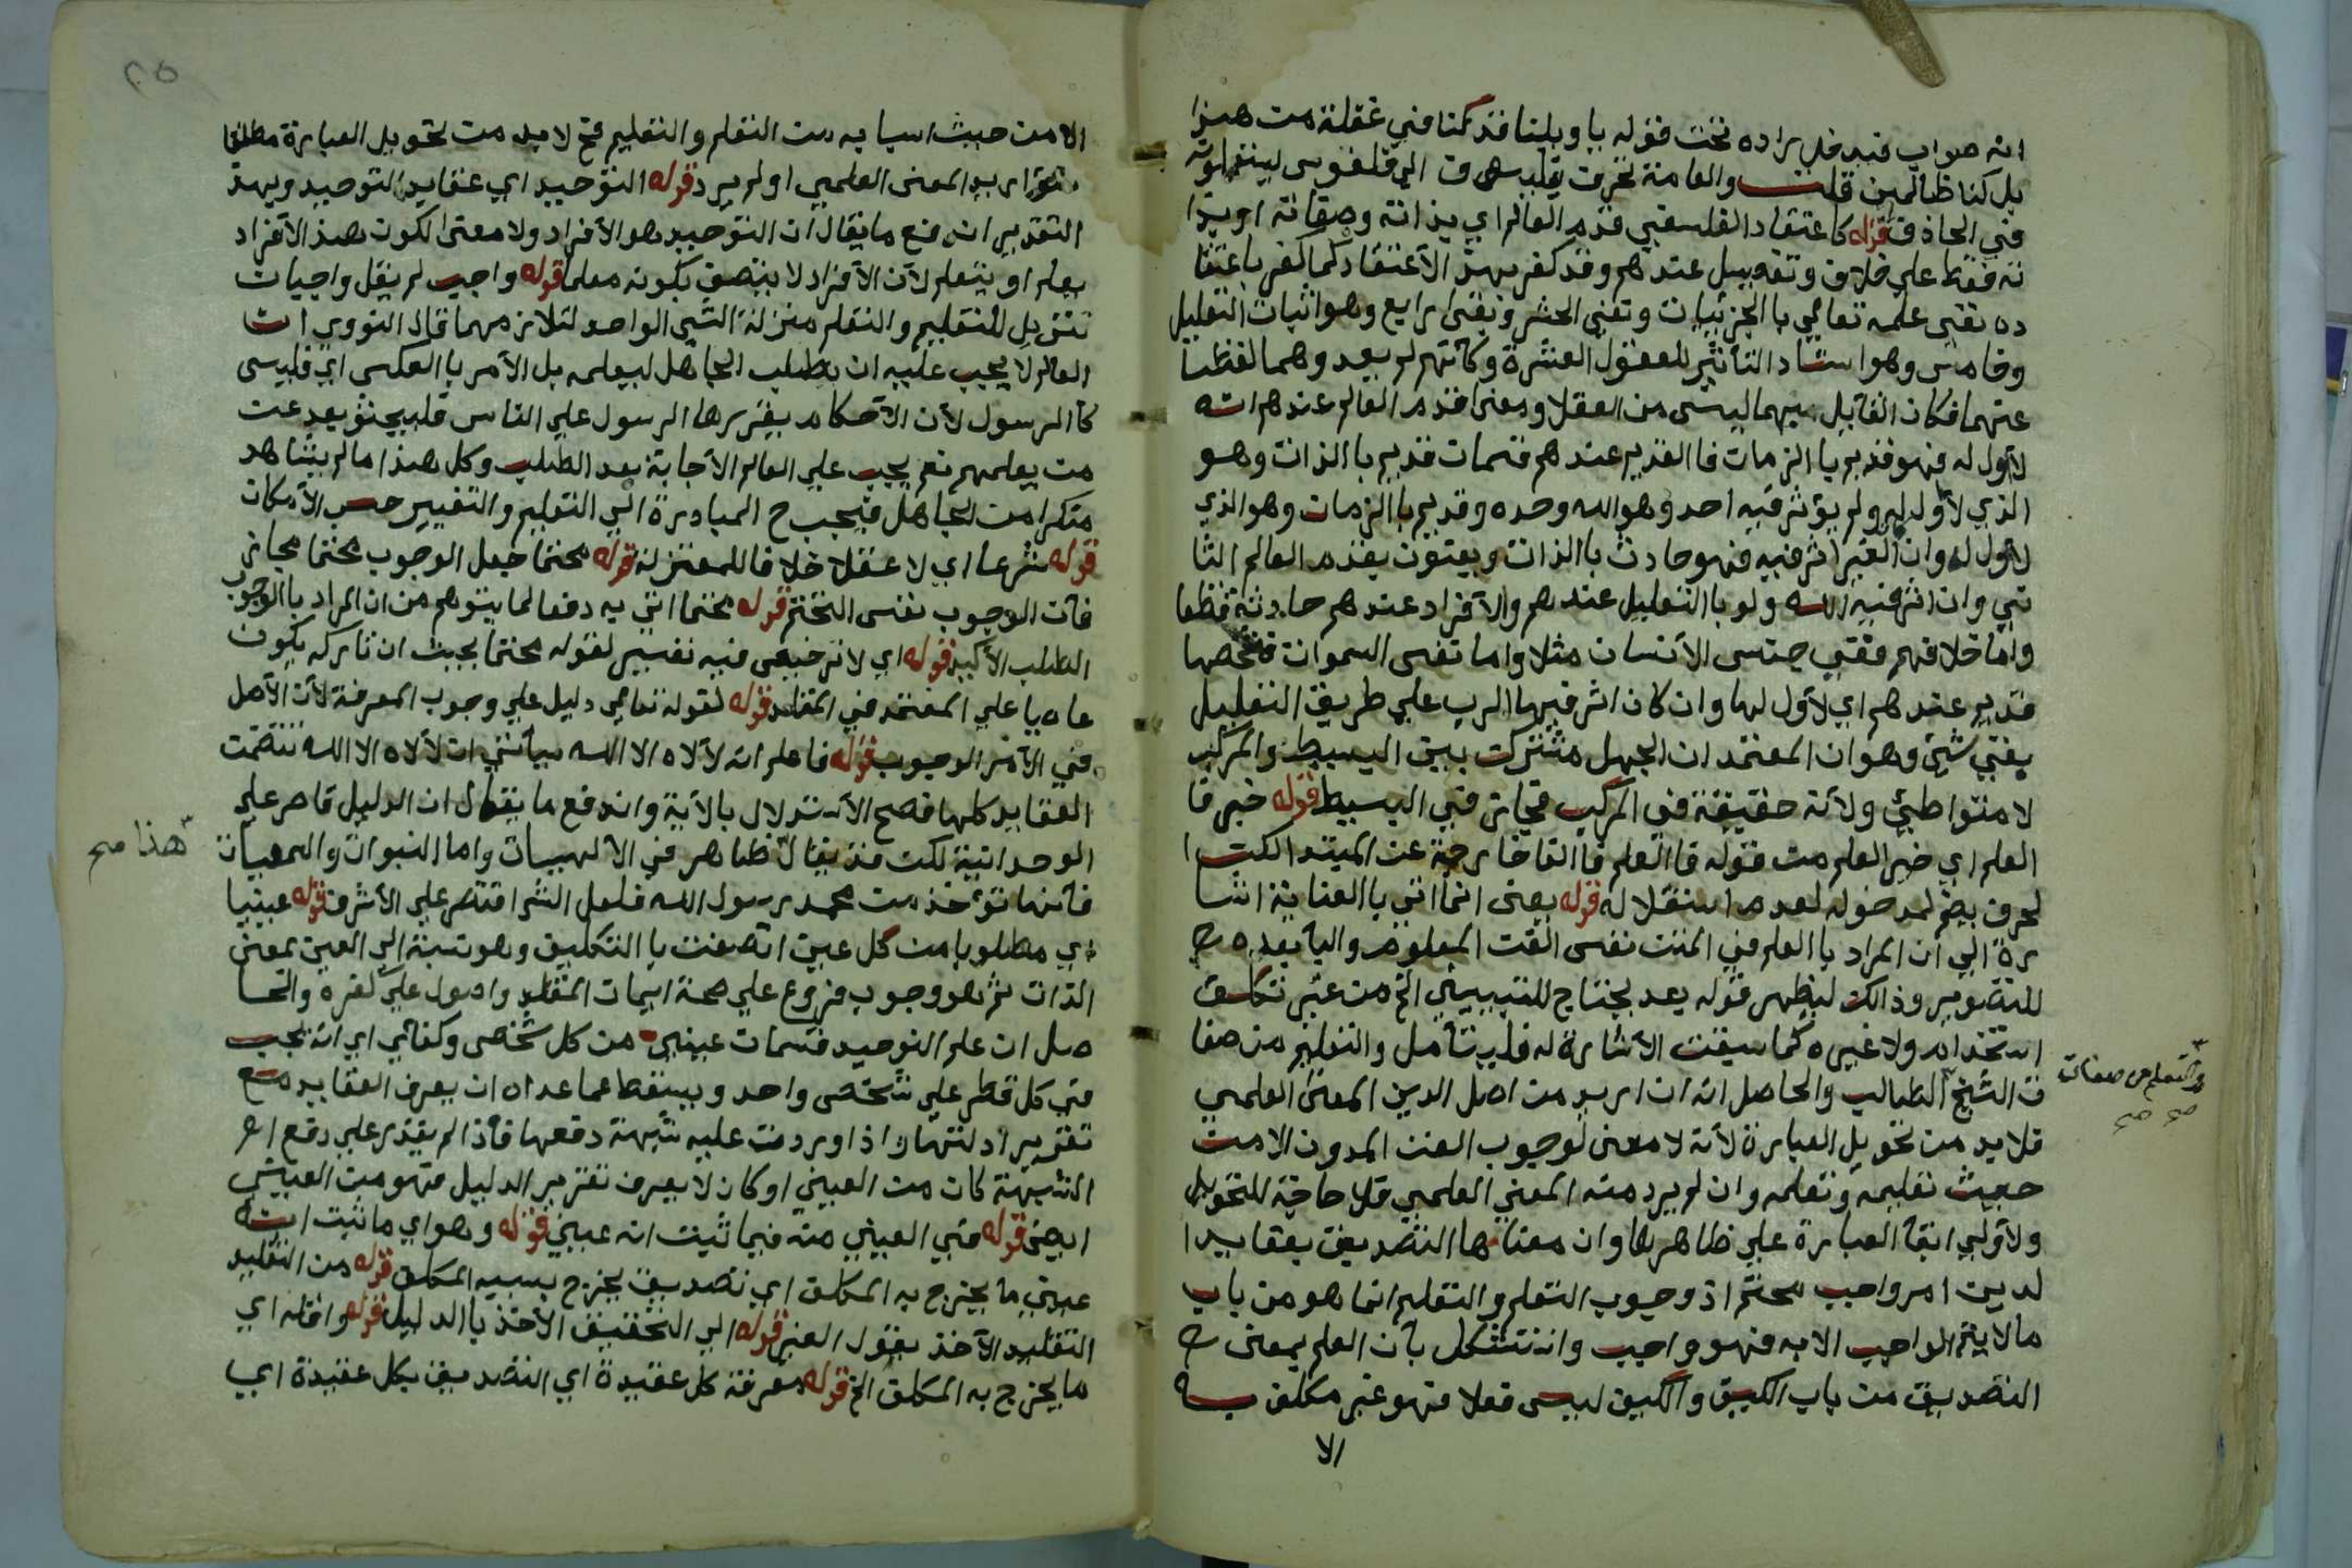 انه صواب فيه فلا يراده نحت فقوله يا ويلنا قد كنا في غفلة من هذا
بل كنا ظالمين قلت والعامة تحرف
في الحاذق قوله كاعتقاد الفلسفي قدم العالم اي بذاته وصفاته او بذا
ته فقط على خلاف وتفصيل عندهم وقد كفر بهذا الأعتقاد كما كفر باعتقا
ده نفي علمه تعالى با الجزئيات ونفي الحشر وبقي رابع وهو اثبات التعليل
وخامس وهو اسناد التأثير للعقول العشرة وكأنهم لم يعد وهما لفظا
عنهما فكان القايل بهما ليس من العقلا ومعنى قدم العالم عندهم انه
لا أول له فهو قديم با الزمان فا القديم عندهم قسمان قديم با الذات وهو
الذي لا أول له ولم يؤثر فيه احد وهو الله وحده وقديم با الزمان وهو الذي
لا أول له وان الغير اثر فيه فهو حادث با الذات ويعنون بقدم العالم الثا
ني وان اثر فيه الله ولو با التعليل عندهم والأفراد عندهم حادثة قطعا
واما خلافهم ففي جنس الأنسان مثلا واما نفس السموات فشخصها
قديم عندهم اي لا أول لها وان كان اثر فيها الرب على طريق التعليل
بقي شيئ وهو ان المعتمد ان الجهل مشترك بين البسيط والمركب
لا متواطئ ولا أنه حقيقة في المركب مجاز في البسيط قوله خبر فا
العلم اي خبر العلم من قوله فا العلم فا الفا خارجة عن المبتدا لكن
لحرف بضم لمدخوله لعدم استقلاله قوله يعني انما اتى با العناية اشا
رة الي ان المراد با العلم في المتن نفس الفن المعلوم واليا بعده ح
للتصوير وذالك ليظهر قوله بعد يحتاج للتبيين الخ من غير تكلف
استخدام ولا غيره كما سيقت الأشارة له فليتأمل والتعليم من صفا
ت الشيخ الطالب والحاصل انه ان اريد من اصل الدين المعنى العلمي
فلا بد من تحويل العبارة لأنه لا معنى لوجوب الفن المدون الا من
حيث تعليمه وتعلمه وان لم يرد منه المعني العلمي فلا حاجة للتحويل
ولأولي ابقأ العبارة على ظاهرها وان معناها التصديق بعقايد ا
لدين امر واجب محتم اذ وجوب التعلم والتعليم انما هو من باب
مالا يتم الواجب الا به فهو واجب واستشكل بأن العلم بمعنى ح
التصديق من باب الكيف والكيف ليس فعلا فهو غير مكلف به
الا
والتعلم من صفات
صح صح
٢٥
الا من حيث اسبابه من التعلم والتعليم فح لا بد من تحويل العبارة مطلقا
اريد المعنى العلمي او لم يرد قوله التوحيد اي عقايد التوحيد وبهذ
التقدير اندفع ما يقال ان التوحيد هو الأفراد ولا معنى لكون هذا الأفراد
يعلم او يتعلم لأن الأفراد لا يتصف بكونه معلما قوله واجب لم يقل واجبان
تنزيل للتعليم والتعلم منزلة الشي الواحد لتلازمهما قال النووي ان
العالم لا يجب عليه ان يطلب الجاهل ليعلمه بل الأمر با العكس اي فليس
كا الرسول لأن الأحكام يقررها الرسول على الناس فليبحث بعد عن
من يعلمهم نعم يجب على العالم الأجابة بعد الطلب وكل هذا مالم يشاهد
منكرا من الجاهل فيجب ح المبادرة الي التعليم والتغيير حسب الأمكان
قوله شرعا اي لا عقلا خلافا للمعتزلة قوله محتما جعل الوجوب محتما مجاز
فأن الوجوب نفس التحتم قوله محتما اتى به دفعا لما يتوهم من ان المراد با الوجوب
الطلب الأكيد قوله اي لا ترخيص فيه تفسير لقوله محتما بحيث ان تاركه يكون
عاصيا على المعتمد في المقلد قوله لقوله تعالى دليل على وجوب المعرفة لأن الأصل
في الأمر الوجوب قوله فاعلم انه لا اله الا الله سيأتي ان لا اله الا الله تتضمن
العقايد كلها فصح الأستدلال بالأية واندفع ما يقال ان الدليل قاصر على
الوحدانية لكن قد يقال ظاهر في الألهيات واما النبوات والسمعيات
فأنها تؤخذ من محمد رسول الله فلعل الشرا قتصر على الأشرف قوله عينيا
اي مطلوبا من كل عين اتصفت با التكليف وهو نسبة الي العين بمعنى
الذات ثم هو وجوب فروع على صحة ايمان المقلد واصول على كفره والحا
صل ان علم التوحيد قسمان عيني من كل شخص وكفائي اي انه يجب
في كل قطر على شخص واحد ويسقط عما عداه ان يعرف العقايد مع
تقرير ادلتها واذا وردت عليه شبهة دفعها فأذا لم يقدر على دفع
الشبهة كان من العيني او كان لا يعرف تقرير الدليل فهو من العيني
ايضى قوله في العيني منه فيما ثبت انه عيني قوله وهو اي ما ثبت انه
عيني ما يخرج به المكلف اي تصديق يخرج بسببه المكلف قوله من التقليد
التقليد الأخذ بقول الغير قوله الي التحقيق الأخذ با الدليل قوله واقله اي
ما يخرج به المكلف الخ قوله معرفة كل عقيدة اي التصديق بكل عقيدة اي
هذا صح